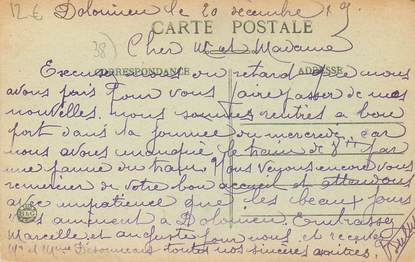 12€ Dolomieu le 20 decembre 19.
CARTE POSTALE
38) Cher Mr et Madame
CORRESPONDANCE ADRESSE
Excusez nous du retard que nous
avons pris pour vous faire passer de nos
nouvelles. nous sommes rentrés a bon
port dans la journee du mercredi, car
nous avons manqué le train de 8h par
une panne du tram. Nous voyons encore vous
remercier de votre bon accueil et attendons
avec impatience que les beaux jours
vous amènent à Dolomieu. Embrassez
Marcelle et auguste pour nous et recevez
Mr et Mme toutes nos sincères amitiés.